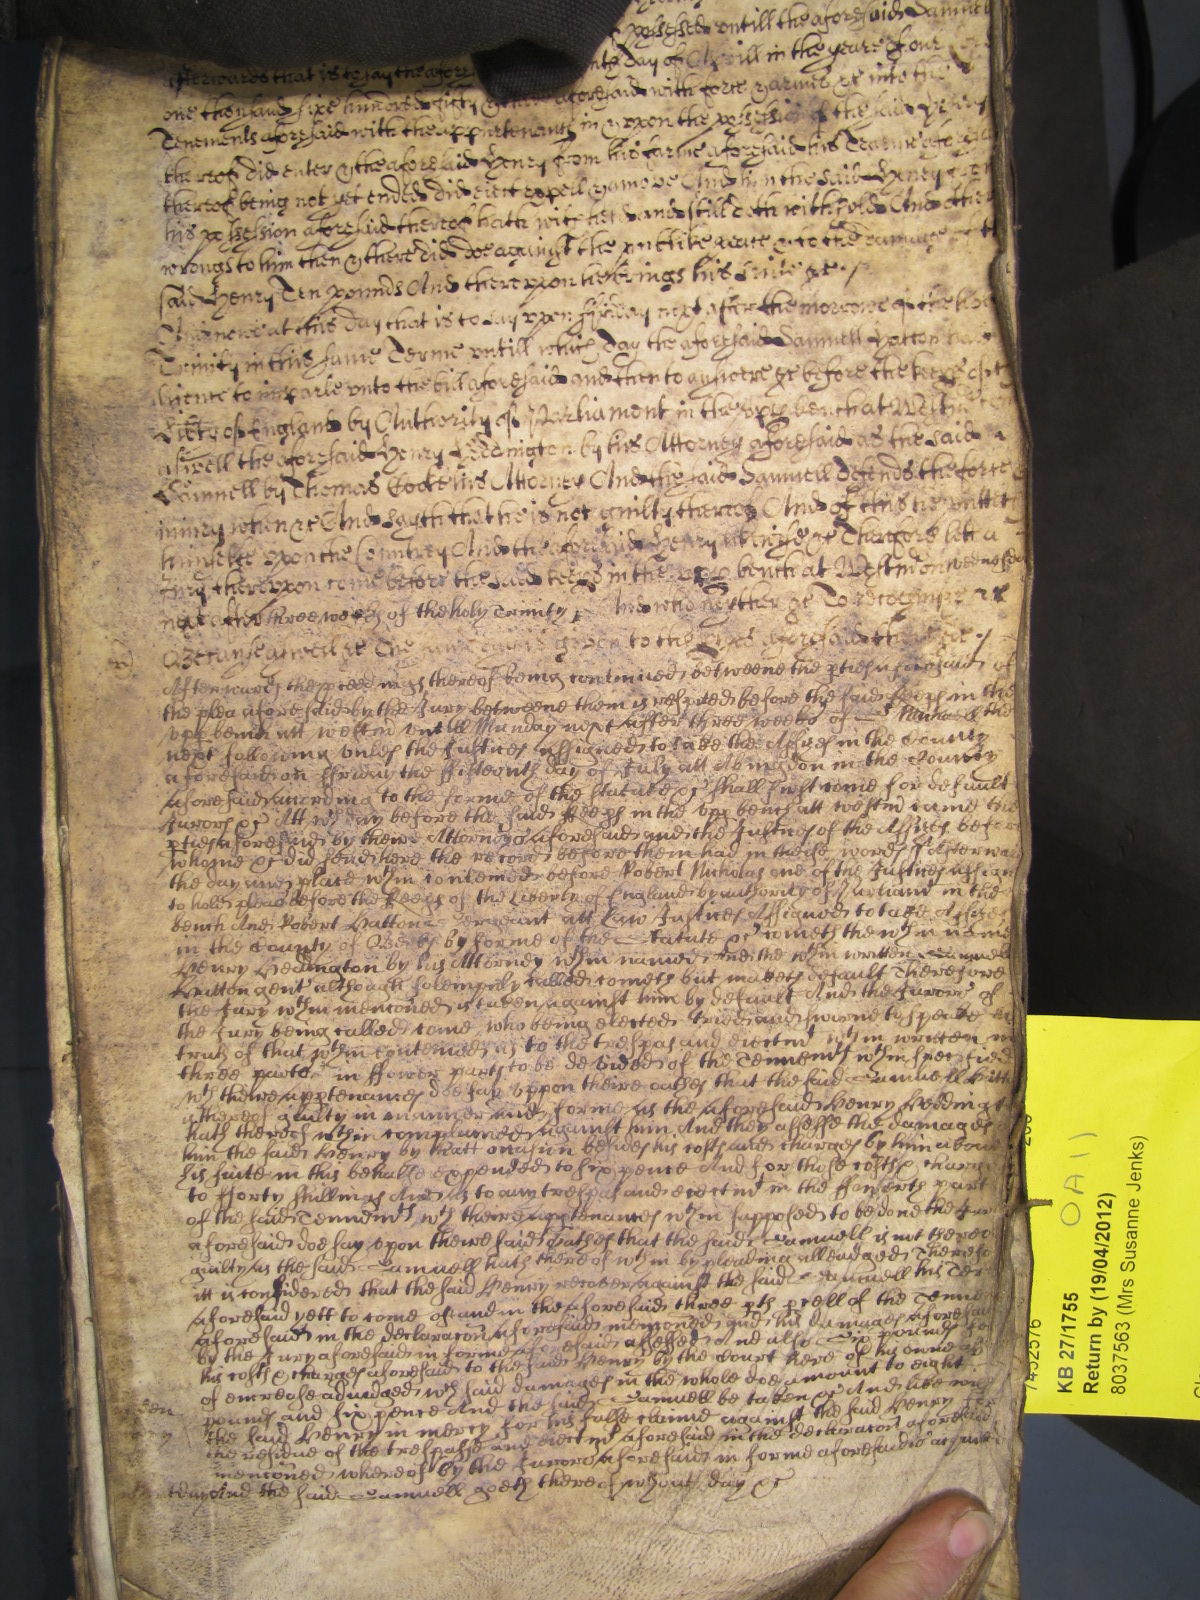 possessed untill the aforesaid Samuel
afterwards that is to say the afore day of Aprill in the yeare of our
one thousand sixe hundred fifty aforesaid with force & armes &c into the
Tenements aforesaid with the appurtenants in & upon the possession of the said Henry
thereof did enter & the aforesaid Henry from his farme aforesaid his Tearme
thereof being not yet ended did eiect expell & amove And him the said Henry
his possession aforesaid thereof hath withheld and still doth withhold And other
wrongs to him then & there did doe against the publike peace & to the damage of the
said Henry Ten pounds And thereupon hee brings his suite &c
And now at this day that is to say upon ffryday next after the morrow of the holy
Trinity in this same Terme untill which day the aforesaid Samuell Hatton had
licence to imparle unto the bill aforesaid and then to answere &c before the keeps of the
Lib~ty of England by Authority of Parliament in the upp bench at Westm~
aswell the aforesaid Henry Heddington by his Attorney aforesaid as the said
Samuell by Thomas Cocke his Attorney And the said Samuell defends the force
iniury when &c And sayth that he is not guilty thereof And of this he putteth
himselfe upon the Countrey And the aforesaid Henry likewise &c Therefore let a
Jury thereupon come before the said keeps in the upp bench at Westm on wednesday
next after three weeks of the holy Trinity And who neyther &c To recognize &c
Because aswell &c The same day is given to the pties aforesaid there &c
Afterwards the proceedings thereof being continued betweene the pties aforesaid of
the plea aforesaid by the Jury betweene them is respited before the said keeps in the
upp bench att westm untill Munday next after three weeks of St Michaell the
next following unles the Justices assigned to take the Assises in the County
aforesaid on ffriday the fifteenth day of July att Abingdon in the County
aforesaid according to the forme of the statute &c shall first come for default
Jurors &c Att wch day before the said keeps in the upp bench att westm came the
pties aforesaid by theire Attorneys aforesaid and the Justices of the Assises before
whome &c did send here the record before them had in these words Afterwards
the day and place wthin contened before Robert Nicholas one of the Justices assigned
to hold pleas before the keeps of the Liberty of England by authority of Parliamt in the
bench And Robert Hatton Sergeant att Law Justices Assigned to take Assises
in the County of Berks by forme of the Statute &c cometh the wthin named
Henry Heddington by his Attorney wthin named And the wthin written Samuell
Hatton gent although solemnly called cometh but maketh default Therefore
the Jury wthin menconed is taken against him by default And the Jurors of
the Jury being called come who being elected tried and sworne to speake the
truth of that wthin contened as to the trespas and eiectmt wthin written in
three parts in ffower parts to be devided of the Tennemts wthin specified
wth theire apptenances doe say uppon theire oathes that the said Samuell Hatton
is thereof guilty in manner and forme as the aforesaid Henry Heddington
hath thereof wthin complained against him And they assesse the damages
him the said Henry by that occasion besides his costs and charges by him about
his suite in this behalfe expended to six pence And for those costs & charges
to fforty shillings And as to any trespas and eiectmt in the ffowerth part
of the said Tennemts wth theire apptenances wthin supposed to be done the Jurors
aforesaid doe say upon theire said oathes that the said Samuell is not thereof
guilty as the said Samuell hath thereof wthin by pleading alleadged Therefore
itt is considered that the said Henry recover against the said Samuell his Terme
aforesaid yett to come of and in the aforesaid three pts pcell of the Tennemts
aforesaid in the declaracon aforesaid menconed and his damages aforesaid
by the Jury aforesaid in forme aforesaid assessed And also six pounds for
his costs & charges aforesaid to the said Henry by the Court here of his owne assent
of encrease adiudged wch said damages in the whole doe amount to eight
pounds and six pence And the said Samuell be taken &c And likewise
the said Henry in mercy for his false clame against the said Henry for
the residue of the trespasse and eiectmt aforesaid in the declaracon aforesaid
menconed whereof by the Jurors aforesaid in forme aforesaid is acquitted
And the said Samuell goeth thereof wthout day &c
7452576
KB 27/1755
Return by (19/04/2012)
8037563 (Mrs Susanne Jenks)
OA 11